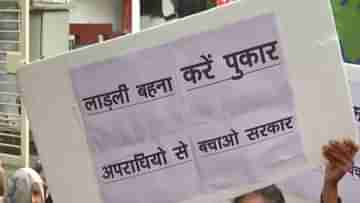 लाड़ली बहना करें पुकार
अपराधियो से बचाओ सरकार